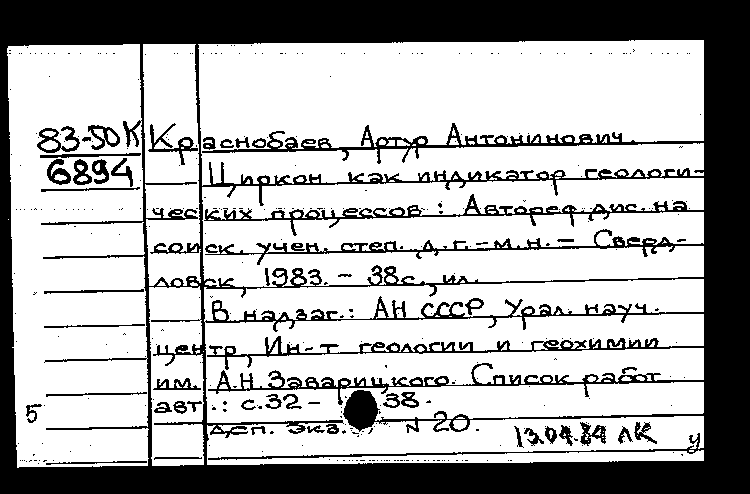 83-50К Краснобаев, Артур Антонинович.
6894 Циркон как индикатор геологи-
ческих процессов : Автореф. дис. на
соиск. учен. степ. д.г.-м.н. - Сверд-
ловск, 1983. - 38с., ил.
В надзаг.: АН СССР, Урал. науч.
центр, Ин-т геологии и геохимии
им. А.Н. Заварицкого. Список работ
5 авт.: с.32 - 38.
ДСП. Экз. N 20.
13.04.84 ЛК у